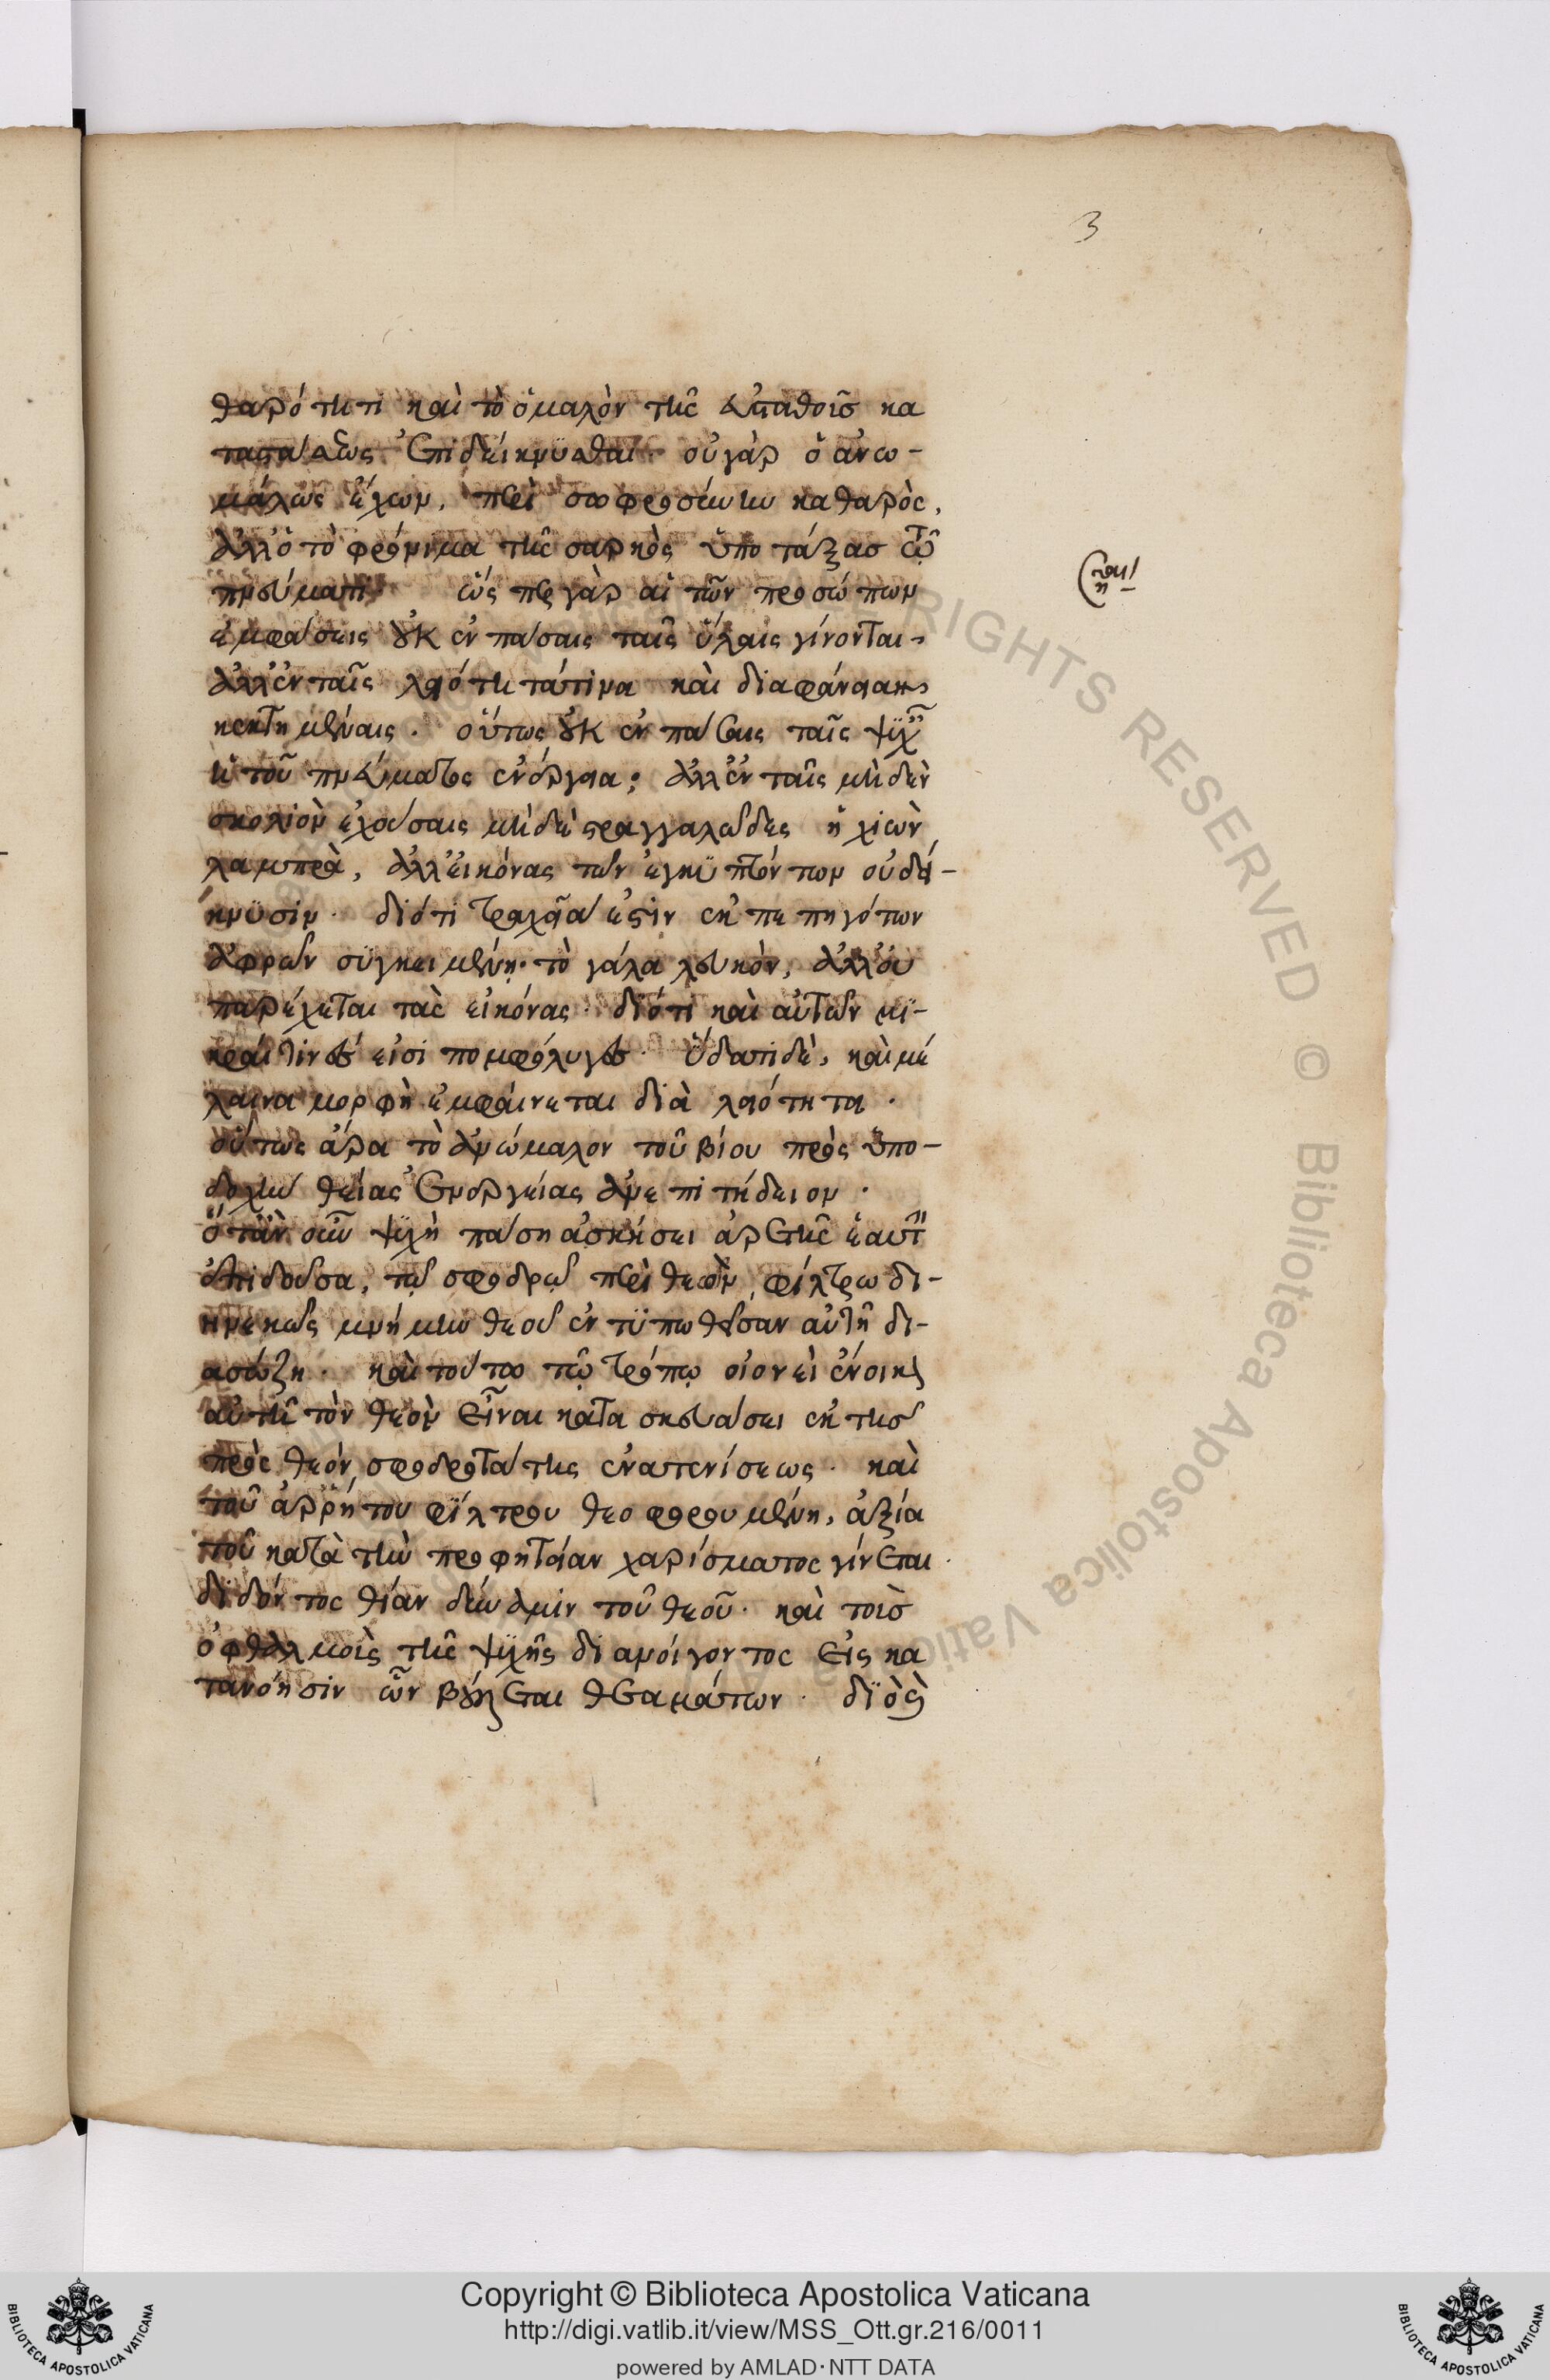 3
θαρότητι καὶ τὸ ὁμαλὸν τῆς εὐσταθοῦς κα
ταστάσεως ἐπιδείκνυσθαι. οὐ γὰρ ὁ ἀνω-
μάλως ἔχων, περὶ σωφροσύνην καθαρὸς,
ἀλλ' ὁ τὸ φρόνημα τῆς σαρκὸς ὑποτάξας τῷ
πνεύματι ὥσπερ γὰρ αἱ τῶν προσώπων
ἐμφάσεις οὐκ ἐν πάσαις ταῖς ὕλαις γίνονται,
ἀλλ' ἐν ταῖς λειότητά τινα καὶ διαφάνειαν
κεκτημέναις. οὕτως οὐκ ἐν πάσαις ταῖς ψυχαῖς
ἡ τοῦ πνεύματος ἐνέργεια; ἀλλ' ἐν ταῖς μηδὲν
σκολιὸν ἐχούσαις μηδὲ στραγγαλῶδες ἡ χιὼν
λαμπρὰ, ἀλλ' εἰκόνας τῶν ἐγκυπτόντων οὐ δεί-
κνυσιν. διότι τραχεῖα ἐστὶν ἐκ πεπηγότων
ἀφρῶν συγκειμένη. τὸ γάλα λευκὸν, ἀλλ' οὐ
παρέχεται τὰς εἰκόνας. διότι καὶ αὐτῶν μι-
κραί τινές εἰσι πομφόλυγες. ὕδατι δὲ, καὶ μέ
λαινα μορφὴ ἐμφαίνεται διὰ λειότητα.
οὕτως ἄρα τὸ ἀνώμαλον τοῦ βίου πρὸς ὑπο-
δοχὴν θείας ἐνεργείας ἀνεπιτήδειον.
ὅταν οὖν ψυχὴ πάσῃ ἀσκήσει ἀρετῆς ἑαυτὴν
ἐπιδοῦσα, τῷ σφοδρῷ περὶ θεὸν φίλτρω δι-
ηνεκῶς μνήμην θεοῦ ἐντυπωθεῖσαν αὐτῇ δι-
ασώζῃ. καὶ τούτω τῷ τρόπῳ οἱονεὶ ἔνοικον
αὐτῆ τὸν θεὸν εἶναι κατασκευάσει ἐκ τῆς
πρὸς θεὸν σφοδροτάτης ἐνατενίσεως. καὶ
τοῦ ἀρρήτου φίλτρου θεοφορουμένη, ἀξία
τοῦ κατὰ τὴν προφητείαν χαρίσματος γίνεται.
διδόντος θείαν δύναμιν τοῦ θεοῦ. καὶ τοῖς
ὀφθαλμοῖς τῆς ψυχῆς διανοίγοντος εἰς κα
τανόησιν ὧν βούλεται θεαμάτων.
Copyright © Biblioteca Apostolica Vaticana
http://digi.vatlib.it/view/MSS_Ott.gr.216/0011
powered by AMLAD·NTT DATA